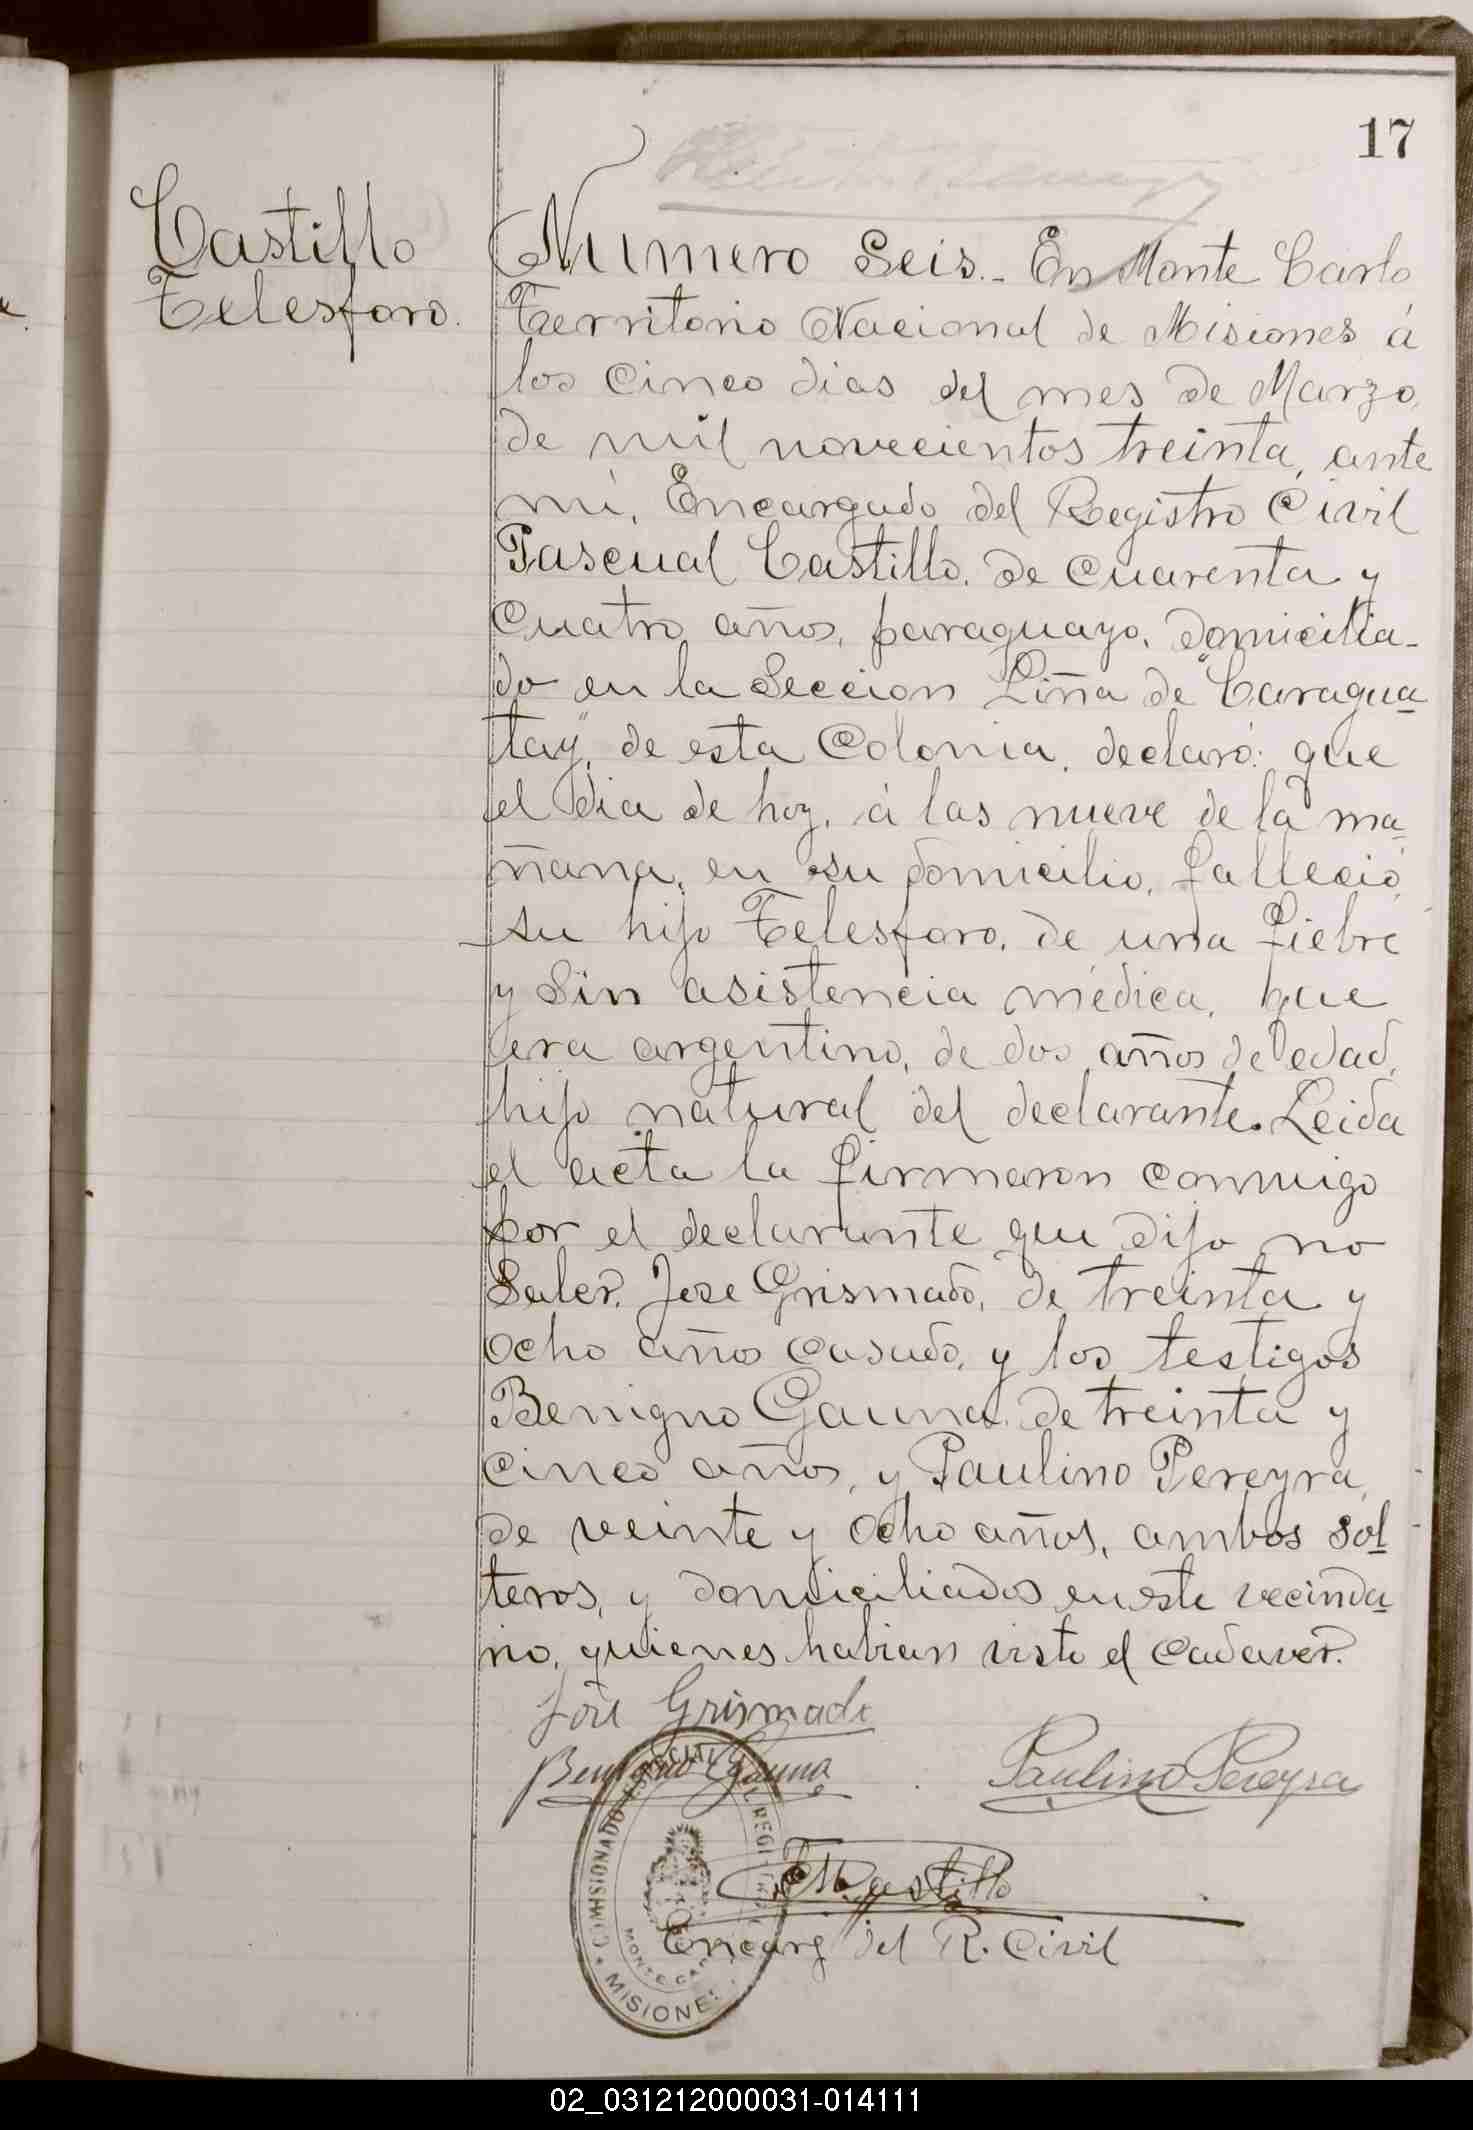 17
Castillo
Telesforo.
Numero Seis.- En Monte Carlo
Territorio Nacional de Misiones á
los Cinco dias del mes de Marzo
de mil novecientos treinta, ante
mi, Encargado del Registro Civil
Pascual Castillo, de cuarenta y
Cuatro años, paraguayo, domicilia-
do en la Seccion Liña de "Caragua
tay", de esta Colonia, declaró: que
el dia de hoy, á las nueve de la ma-
ñana, en su domicilio, falleció
su hijo Telesforo, de una fiebre
y Sin asistencia médica, que
era argentino, de dos años de edad,
hijo natural del declarante. Leida
el acta la firmaron conmigo
por el declarante que dijo no
Saber, Jose Grismado, de treinta y
ocho año casado, y los testigos
Benigno Gauna de treinta y
cinco años, y Paulino Pereyra,
de veinte y ocho años, ambos sol
teros, y domiciliados en este vecinda
rio, quienes habian visto el cadaver.
José Grismado
Benigno Gauna
Paulino Pereyra
Castillo
Encarg del R. Civil
COMISIONADO
MISIONES
02_031212000031-014111